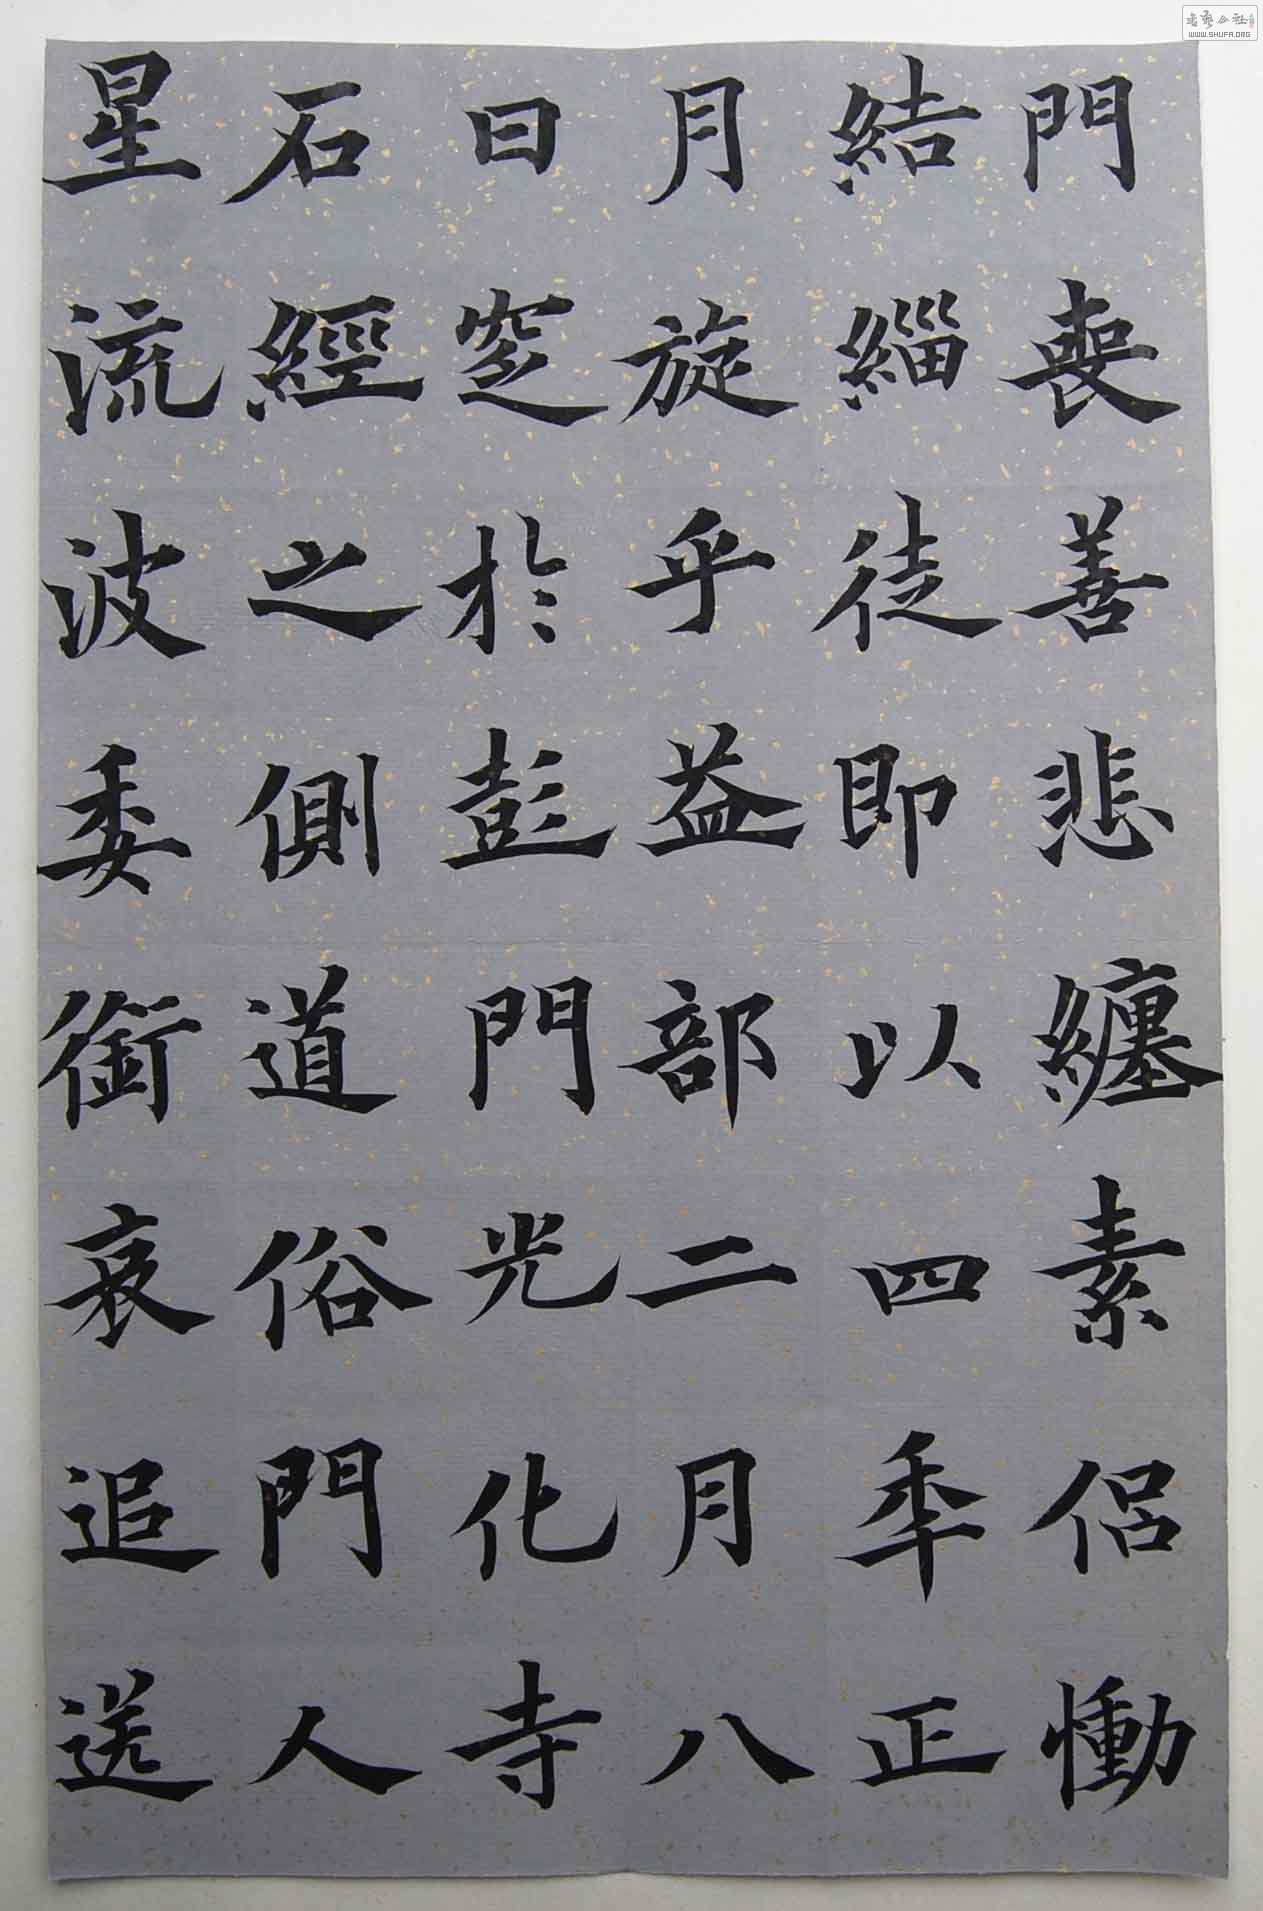 門喪善悲纏素侶慟
結緇徒即以四年正
月旋乎益部二月八
日窆於彭門光化寺
石經之側道俗門人
星流波委銜哀追送
書藝公社
WWW.SHUFA.ORG